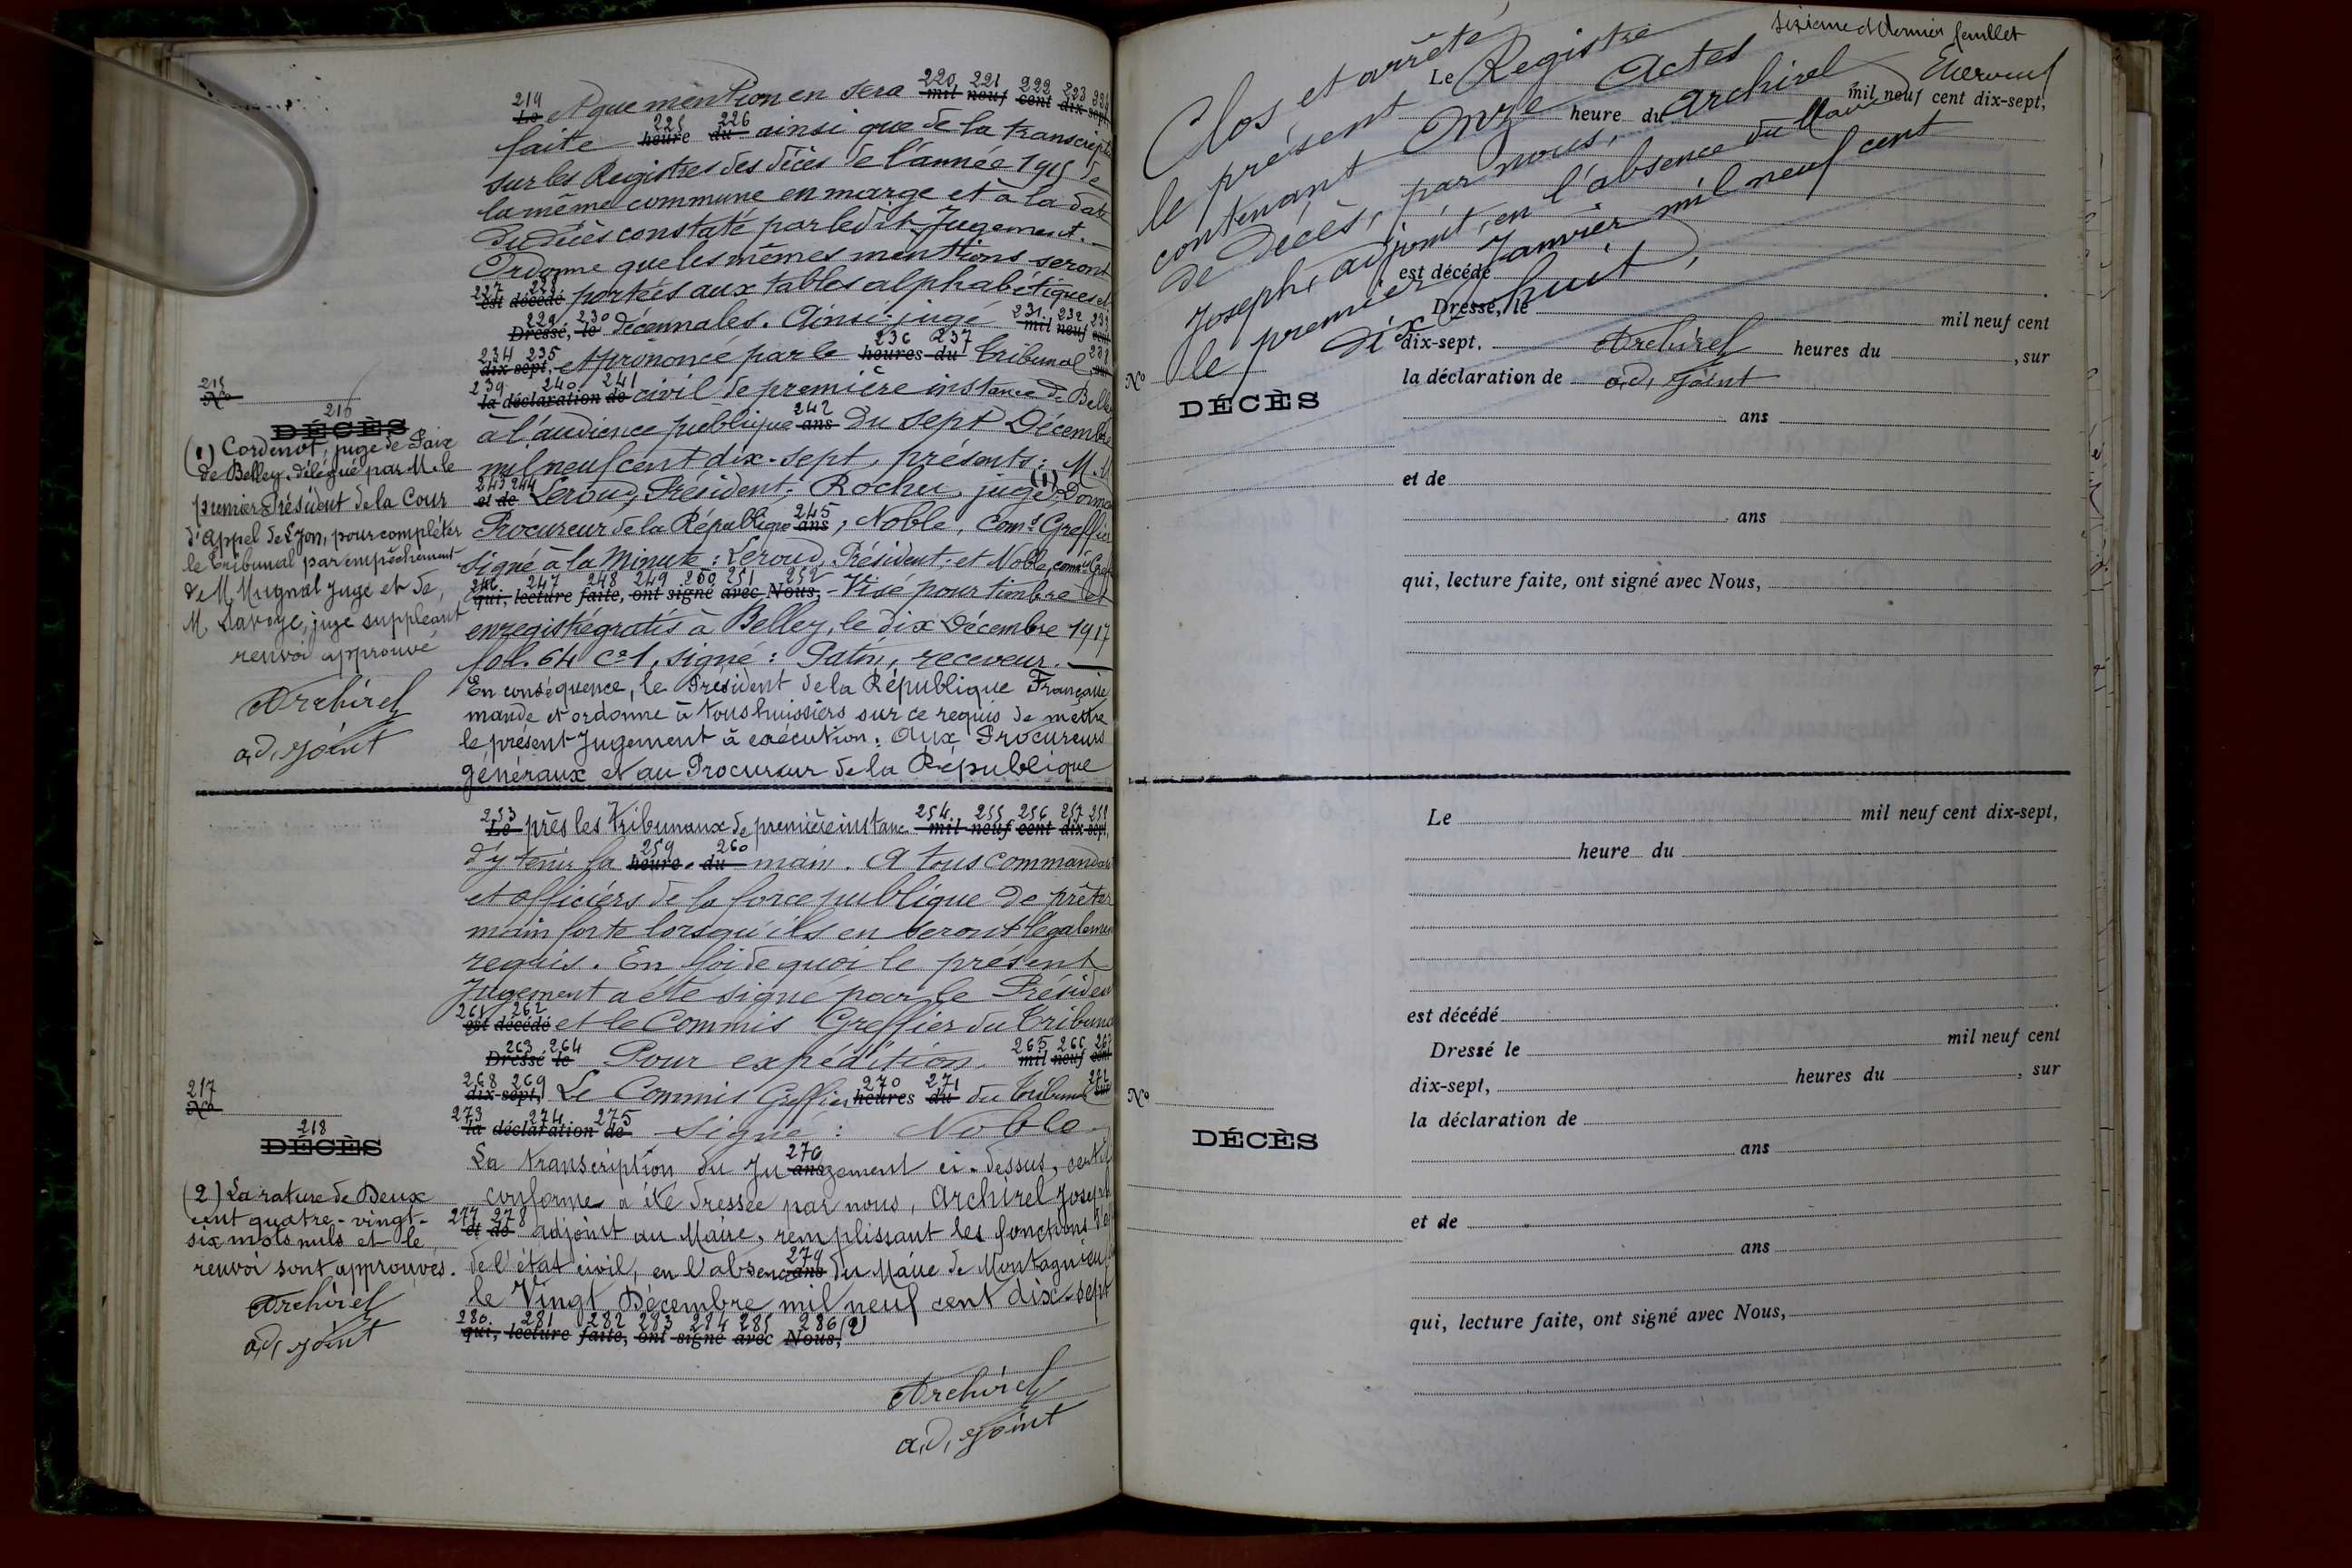 219 220 221 222 223 224
Le Et que mention en sera mil neuf cent dix-sept,
225 226
faite heure du ainsi que de la transcripti
sur les Registres des décès de l'année 1915 de
la même commune en marge et à la date
du décès constaté par ledit Jugement. —
Ordonne que les mêmes mentions seront
227 228
est décédé portées aux tables alphabétiques et
229 230 231 232 233
Dressé, le décennales. Ainsi jugé mil neuf cent
234 235 236 237 238
dix-sept, et prononcé par le heures du tribunal sur
239 240 241
la déclaration de civil de première instance de Belle
242
à l'audience publique ans du sept Décembre
mil neuf cent dix-sept, présents : M.M
243 244
et de Leroud, Président; Rocher, juge (1),
245
Procureur de la République ans, Noble, Comis Greffier
signé à la Minute : Leroud, Président et Noble, comis Gref
246 247 248 249 250 251 252
qui, lecture faite, ont signé avec Nous, - Visé pour timbre et
enregistré gratis à Belley, le dix Décembre 1917
fol. 64 Ce 1, signé : receveur. —
En conséquence, le Président de la République Française
mande et ordonne à tous huissiers sur ce requis de mettre
le présent Jugement à exécution; Aux Procureurs
généraux et au Procureur de la République
215
No
216
DÉCÈS
(1) Cordenot, juge de Paix
de Belley, délégué par M. le
premier Président de la Cour
d'Appel de Lyon, pour compléter
le Tribunal par empêchement
de M. Mugnat Juge et de,
M. Lavoye, juge suppléant
renvoi approuvé
Archirel
adjoint
253 254 255 256 257 258
Le près les Tribunaux de première instance mil neuf cent dix-sept,
259 260
d'y tenir la heure du main. A tous commandan
et officiers de la force publique de prêter
main forte lorsqu'ils en seront légalemen
requis. En foi de quoi le présent
Jugement a été signé par le Présiden
261 262
est décédé et le Commis Greffier du Tribuna
263 264 265 266 267
Dressé le Pour expédition. mil neuf cent
268 269 270 271 272
dix-sept, Le Commis Greffier heures du du tribunal sur
273 274 275
la déclaration de Signé : Noble.
276
La transcription du Ju ans gement ci-dessus,
conforme a été dressée par nous, Archirel Joseph
277 278
et de adjoint au Maire, remplissant les fonctions
279
de l'état civil, en l'absence ans du Maire de Montagnieu
le Vingt Décembre mil neuf cent dix-sept
280 281 282 283 284 285 286 (2)
qui, lecture faite, ont signé avec Nous,
Archirel
adjoint
217
No
218
DÉCÈS
(2) La rature de Deux
cent quatre-vingt-
six mots nuls et le
renvoi sont approuvés.
Archirel
adjoint
sixième et dernier feuillet
Clos et arrêté
le présent Registre
contenant Onze Actes
de décès, par nous, Archirel
Joseph, adjoint, en l'absence du Maire
le premier Janvier mil neuf cent
dix huit,
Archirel
adjoint
Le mil neuf cent dix-sept,
heure du
est décédé .
Dressé, le mil neuf cent
dix-sept, heures du , sur
la déclaration de
ans
et de
ans
qui, lecture faite, ont signé avec Nous,
No
DÉCÈS
Le mil neuf cent dix-sept,
heure du
est décédé .
Dressé le mil neuf cent
dix-sept, heures du , sur
la déclaration de
ans
et de
ans
qui, lecture faite, ont signé avec Nous,
No
DÉCÈS